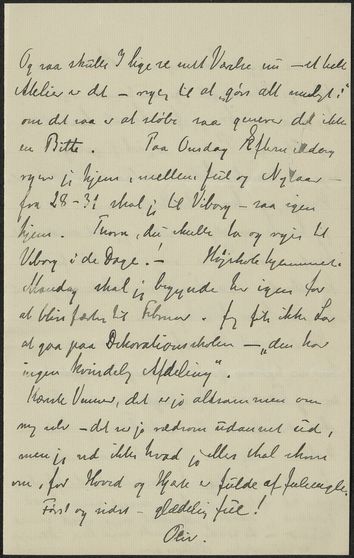 Og saa skulde I lige se mit Værelse nu – et helt
Atelier er det – ryg til at „gøre alt muligt i"
om det saa er at støbe saa generer det ikke
en Bitte. Paa Onsdag Eftermiddag
rejser jeg hjem, mellem Jul og Nytaar –
fra 28-31 skal jeg til Viborg – saa igen
hjem. Tænk, du skulde ta og rejse til
Viborg i de Dage! – Højskolehjemmet.
Mandag skal jeg begynde her igen for
at blive færdig til Februar. Jeg fik ikke Lov
at gaa paa Dekorationsskolen – „den har
ingen kvindelig Afdeling".
Kæreste Venner, det er jo altsammen om
mig selv – det er jo rædsom udannet ud,
men jeg ved ikke hvad jeg ellers skal skrive
om, for Hoved og Hjærte er fulde af Juleengle.
Først og sidst – glædelig Jul!